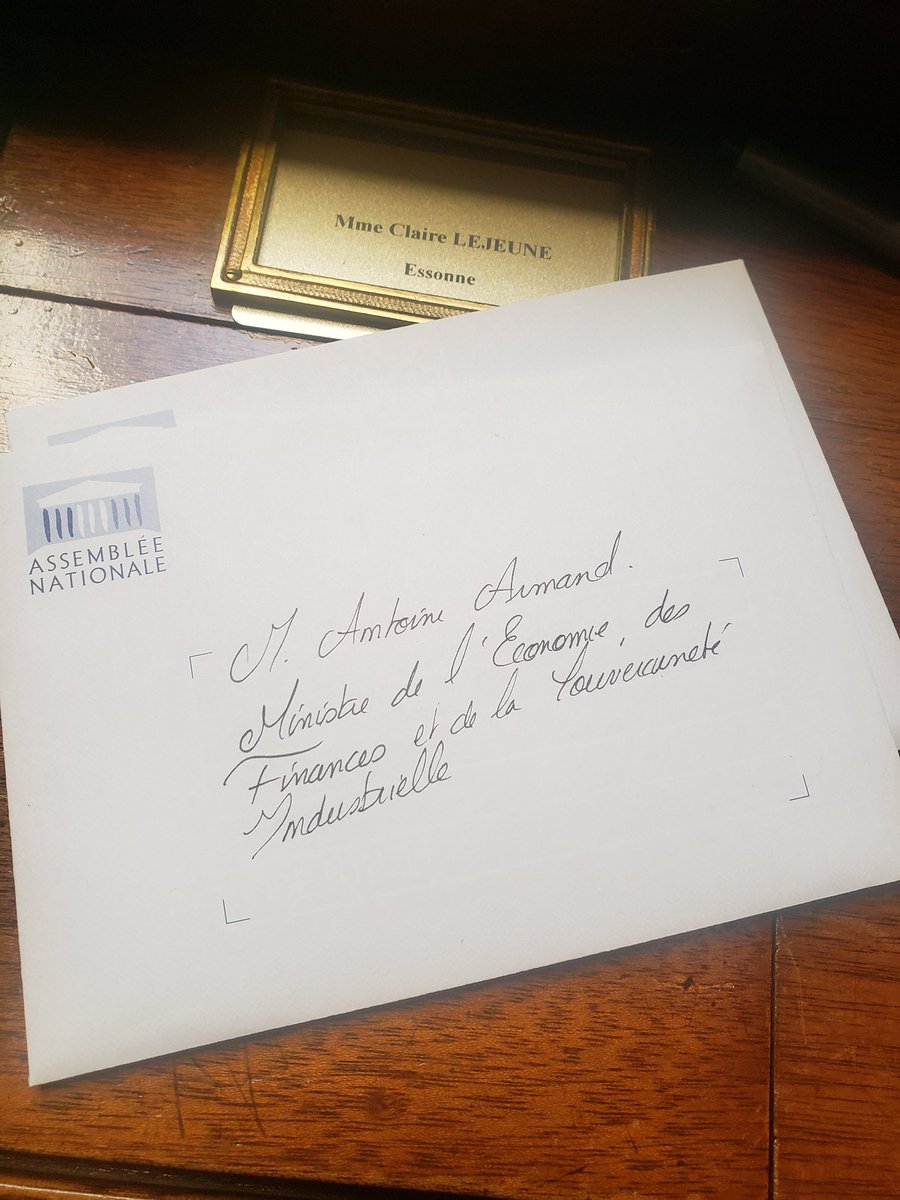 Mme Claire LEJEUNE
Essonne
ASSEMBLÉE
NATIONALE
M. Antoine Armand.
Ministre de l'Economie, des
Finances et de la Souveraineté
Industrielle